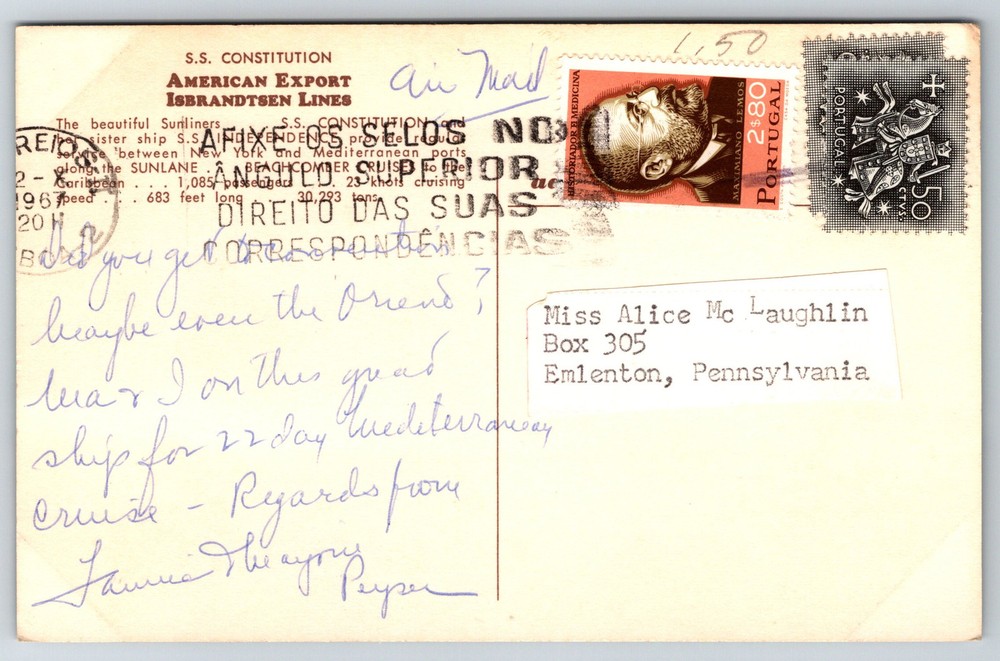 S.S. CONSTITUTION
AMERICAN EXPORT
ISBRANDTSEN LINES
The beautiful Sunliners S.S. CONSTITUTION and
sister ship S.S. INDEPENDENCE provide
between New York and Mediterranean ports
along the SUNLANE. BEACHCOMBER CRUISES to the
Caribbean . . . 1,085 passengers 23 knots cruising
speed . . . 683 feet long 30,293 tons.
Air Mail
1,50
2-X
1967
20 H
AFIXE OS SELOS NO
ÂNGULO SUPERIOR
DIREITO DAS SUAS
CORRESPONDÊNCIAS
HISTORIADOR DA MEDICINA
MAXIMIANO LEMOS
2$80
PORTUGAL
PORTUGAL
50
CTVS.
Did you get to
maybe even the Orient?
Max & I on this great
ship for 22 day Mediterranean
cruise – Regards from
Fannie
Peyser
Miss Alice Mc Laughlin
Box 305
Emlenton, Pennsylvania